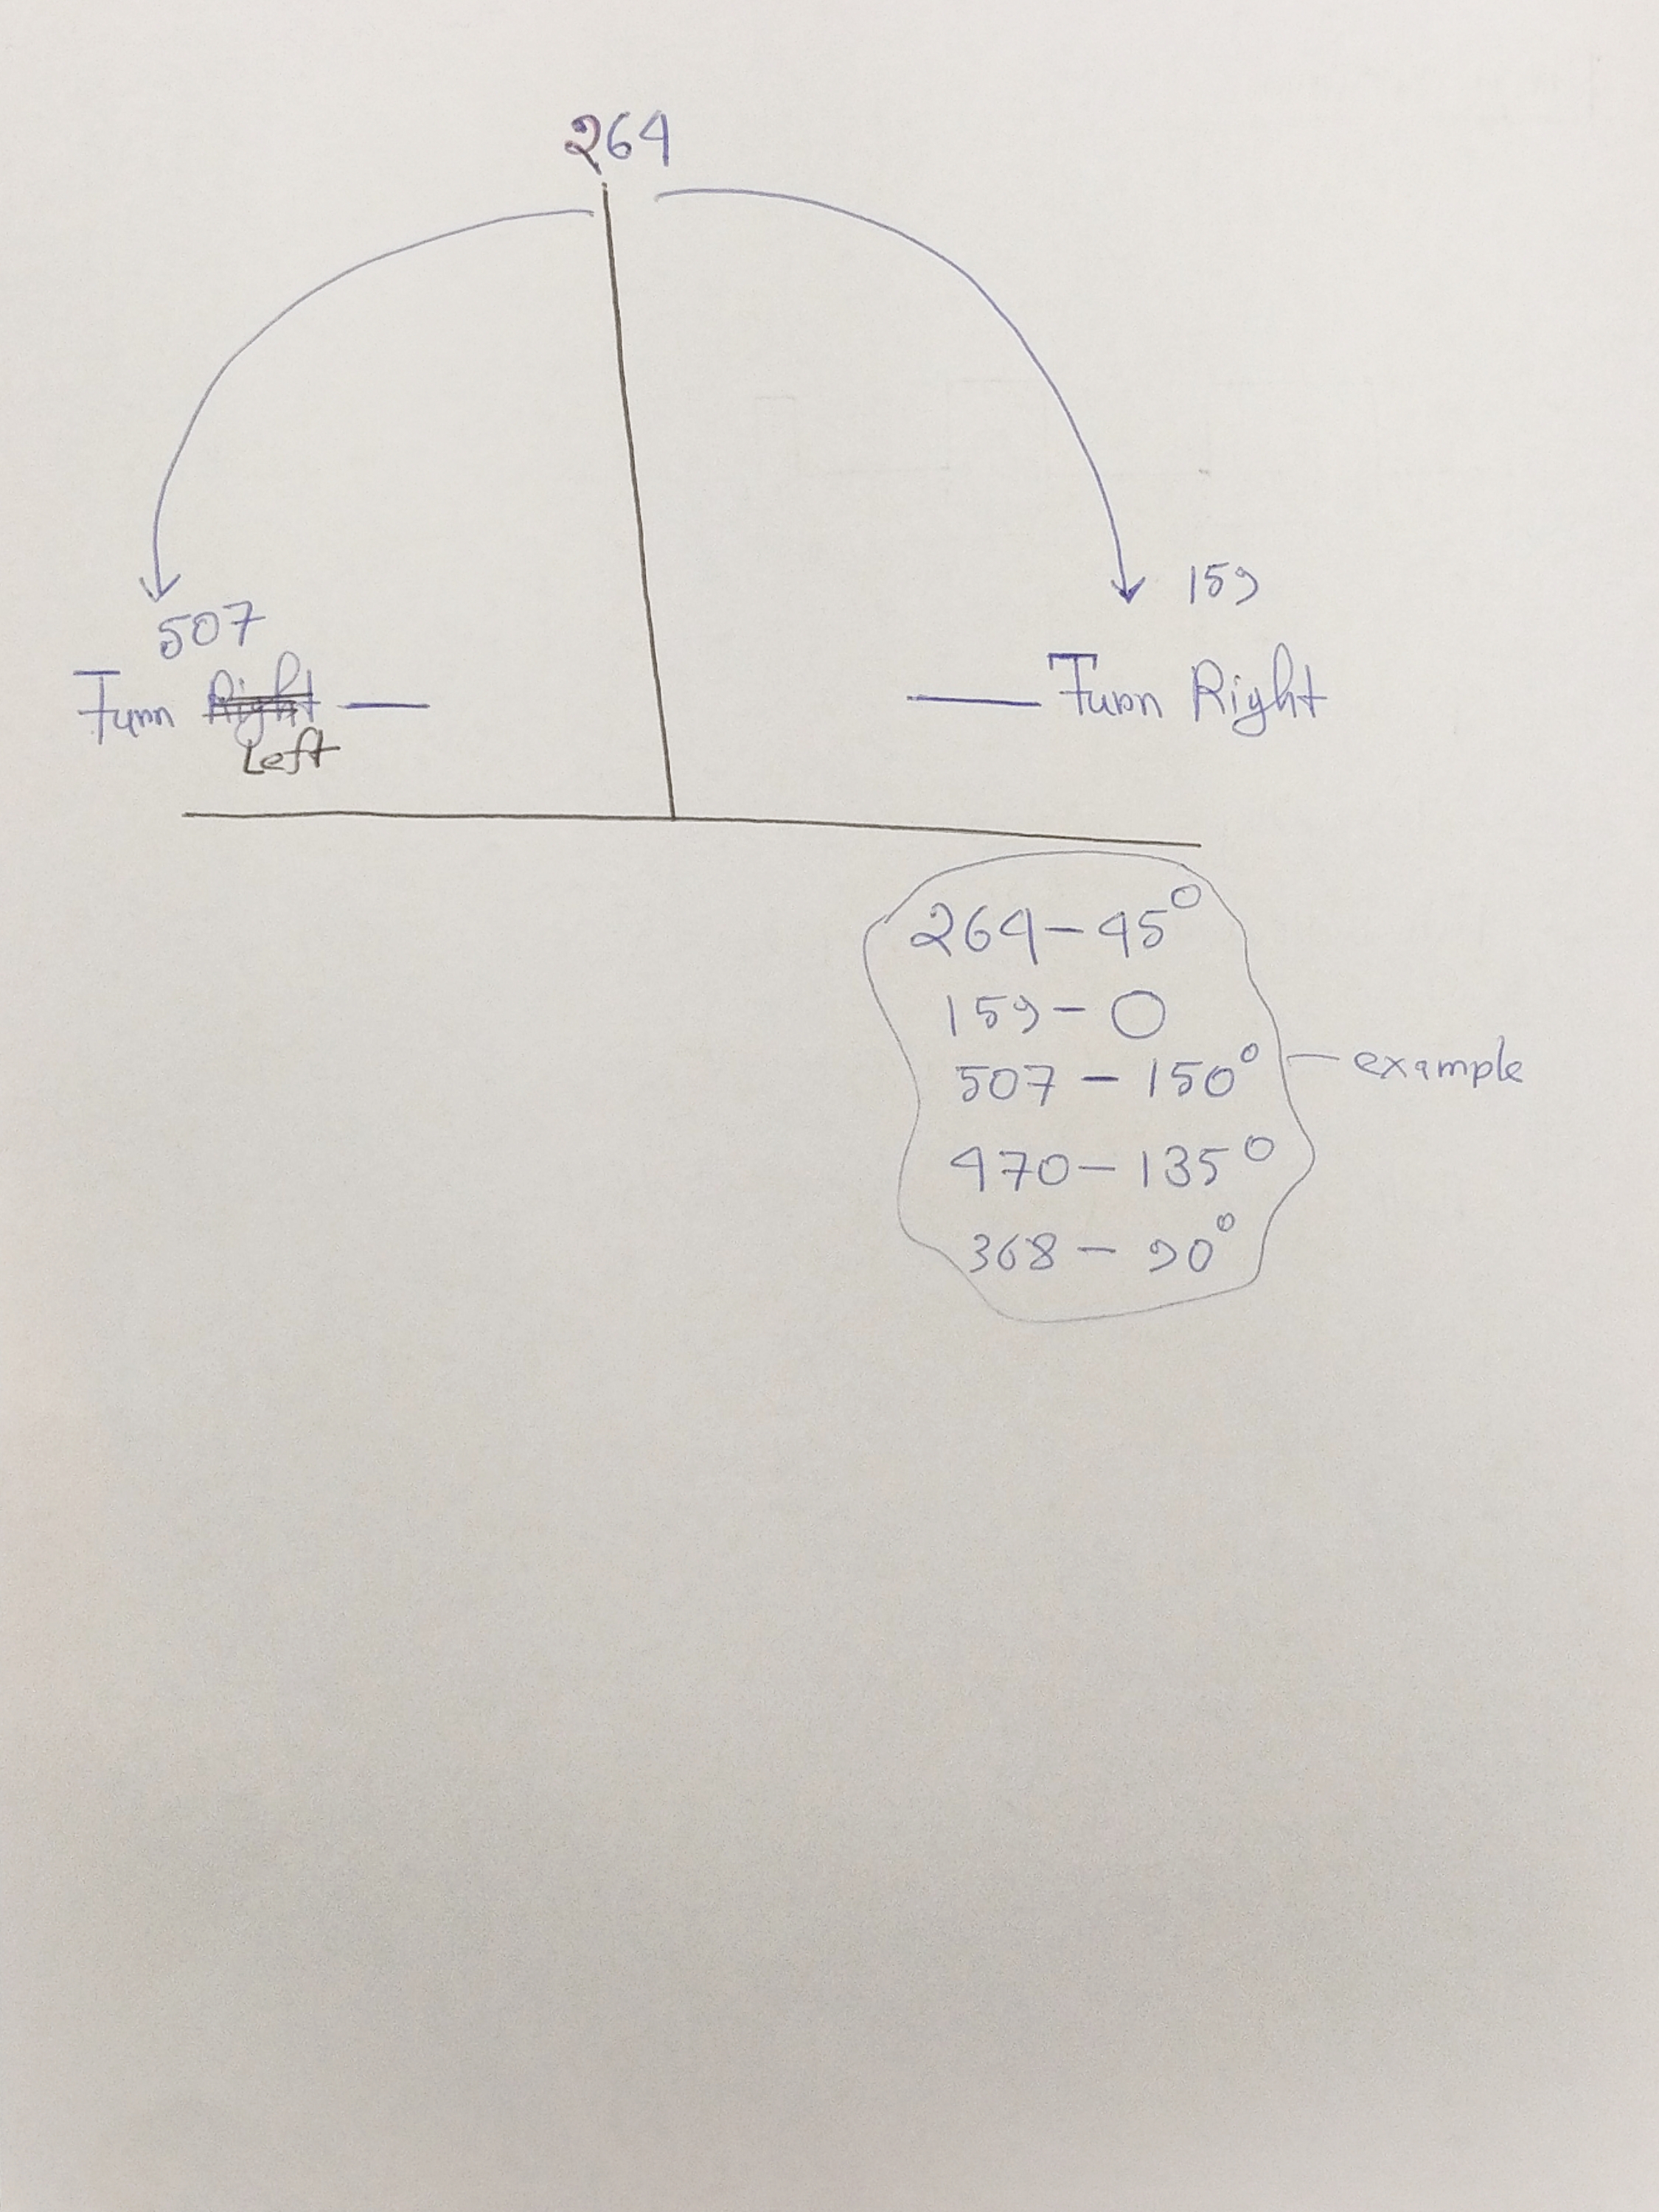 264
507
159
Turn Left
Turn Right
264 - 45°
159 - 0
507 - 150°
470 - 135°
368 - 90°
example